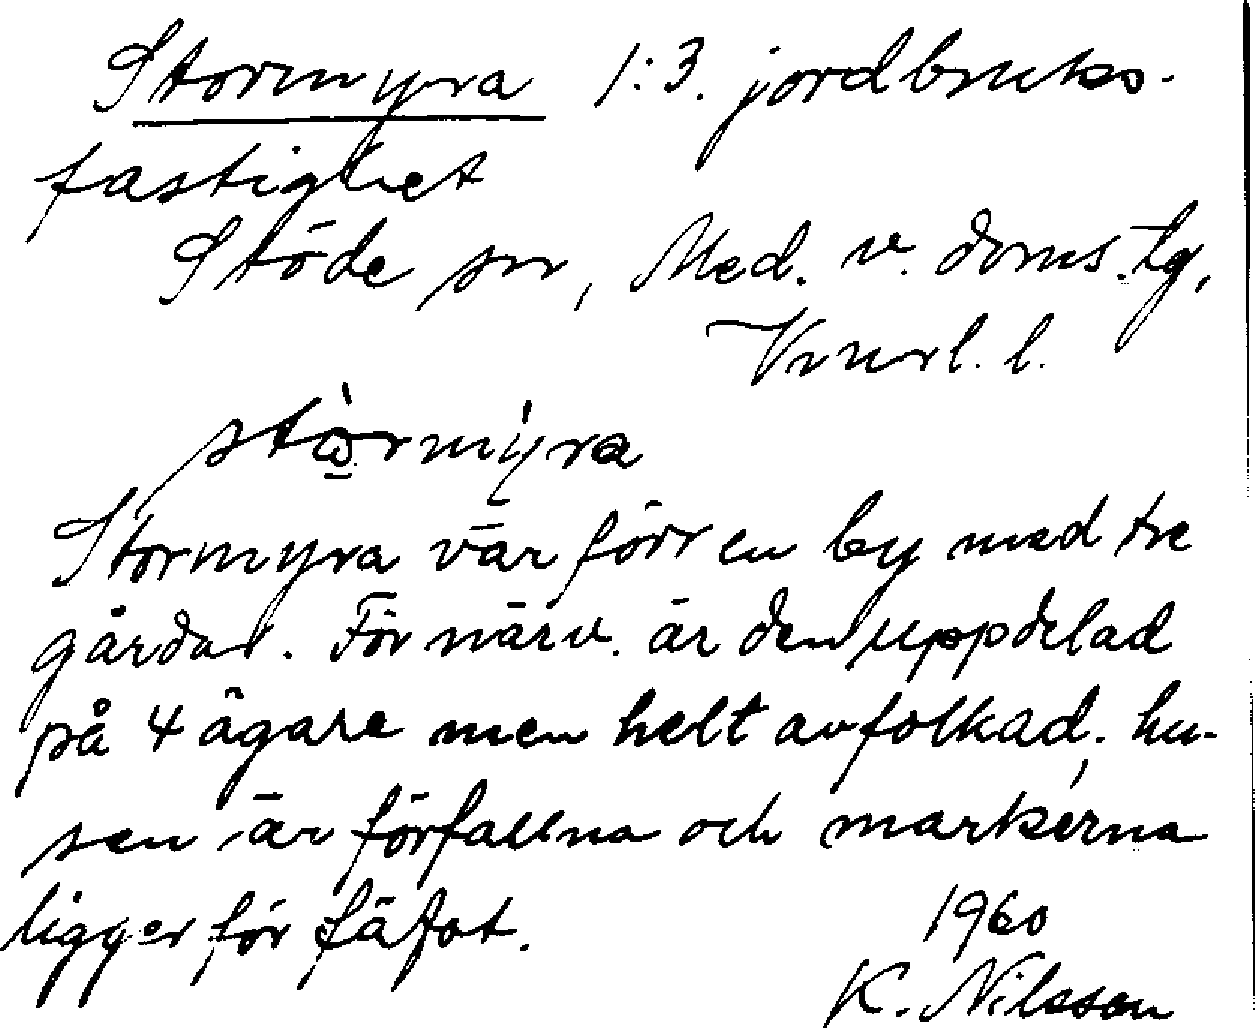 Stormyra 1:3. jordbruks-
fastighet
Stöde sn, Med. v. doms.tg,
Vnorl. l.
stòrmỳra
Stormyra var förr en by med tre
gårdar. För närv. är den uppdelad
på 4 ägare men helt avfolkad, hu-
sen är förfallna och markerna
ligger för fäfot.
1960
K. Nilsson